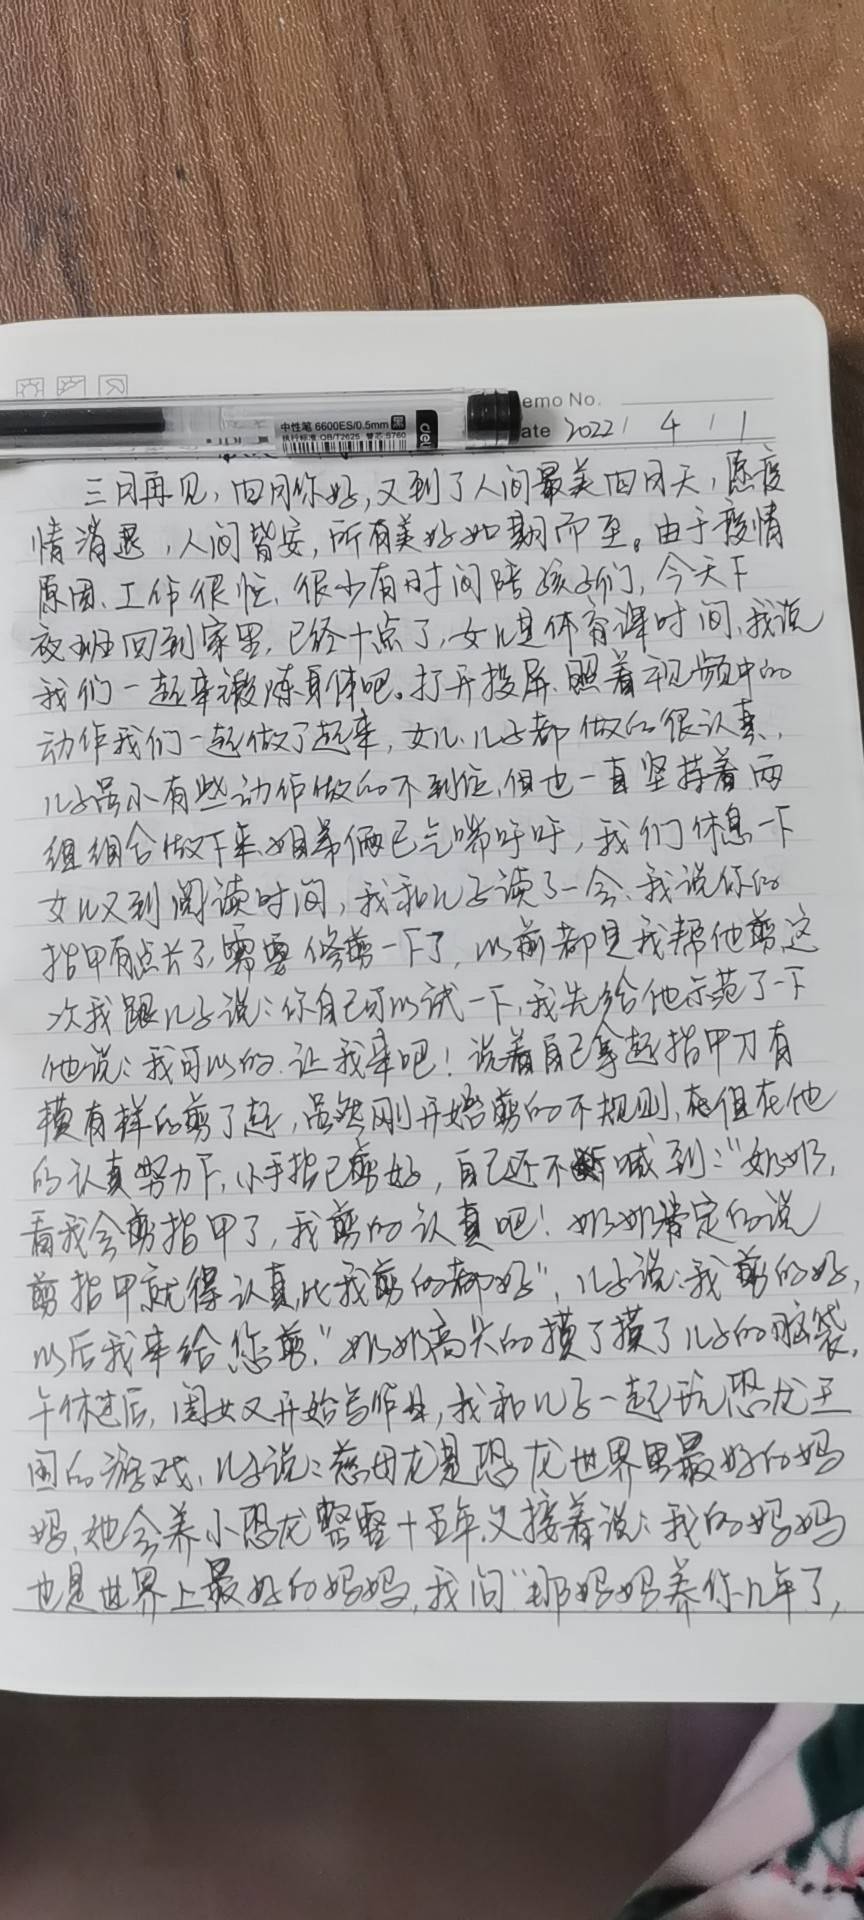 emo No.
中性笔 6600ES/0.5mm 黑 deli
执行标准:QB/T2625 替芯:S760
ate 2022 / 4 / 1
三月再见,四月你好,又到了人间最美四月天,愿疫
情消退,人间皆安,所有美好如期而至。由于疫情
原因、工作很忙、很少有时间陪孩子们,今天下
夜班回到家里,已经十点了,女儿是体育课时间、我说
我们一起来锻炼身体吧。打开投屏、照着视频中的
动作我们一起做了起来,女儿、儿子都做的很认真,
儿子虽小有些动作做的不到位,但也一直坚持着,两
组组合做下来,姐弟俩已气喘吁吁,我们休息一下
女儿又到阅读时间,我和儿子读了一会、我说你的
指甲有点长了,需要修剪一下了,以前都是我帮他剪,这
次我跟儿子说:你自己可以试一下,我先给他示范了一下
他说:我可以的、让我来吧!说着自己拿起指甲刀有
模有样的剪了起,虽然刚开始剪的不规则,但在他
的认真努力下,小手指已剪好,自己还不断喊到:“奶奶,
看我会剪指甲了,我剪的认真吧!奶奶肯定的说
剪指甲就得认真,比我剪的都好”,儿子说:我剪的好,
以后我来给您剪,”奶奶高兴的摸了摸了儿子的脑袋,
午休过后,闺女又开始写作业,我和儿子一起玩恐龙王
国的游戏、儿子说:慈母龙是恐龙世界里最好的妈
妈,她会养小恐龙整整十五年,又接着说:我的妈妈
也是世界上最好的妈妈,我问“那妈妈养你几年了,